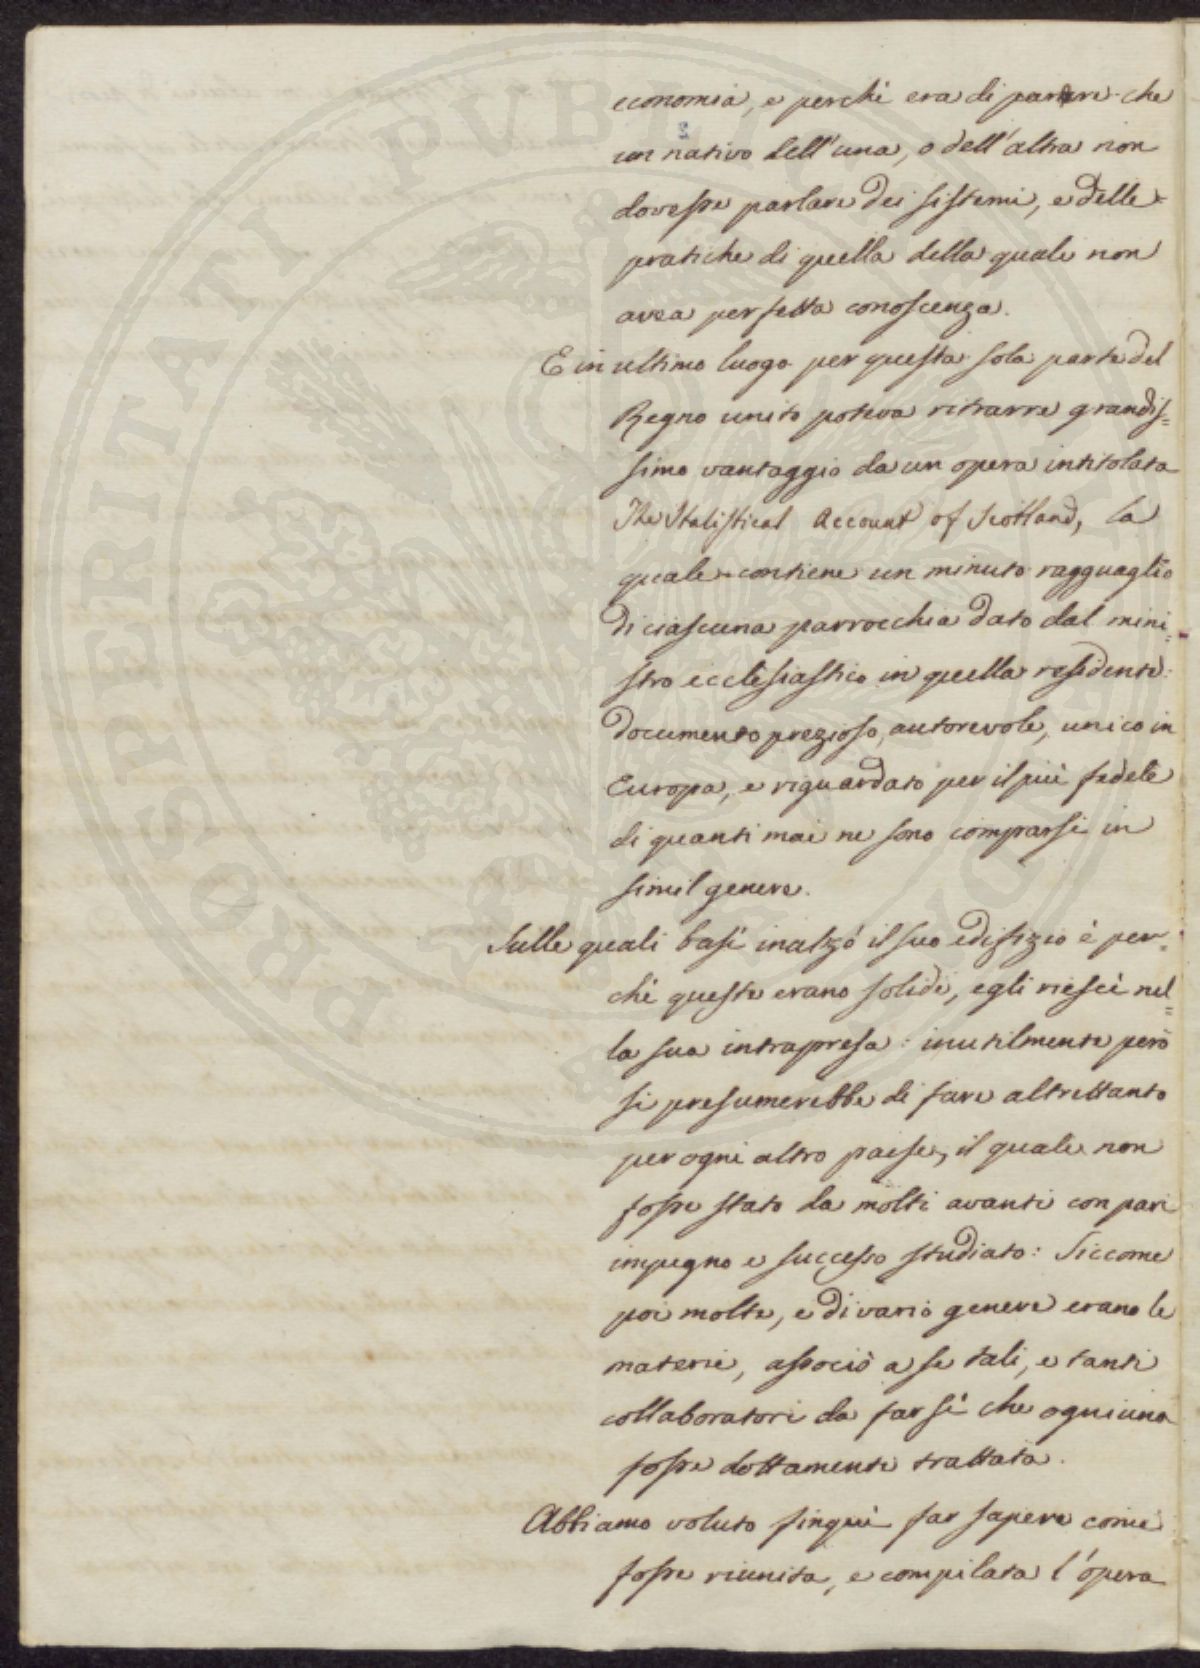 economia, e perchè era di parere che
un nativo dell'una, o dell'altra non
dovesse parlare dei sistemi, e delle
pratiche di quella della quale non
avea perfetta conoscenza.
E in ultimo luogo per questa sola parte del
Regno unito poteva ritrarre grandis=
simo vantaggio da un opera intitolata
The Statistical Account of Scotland, la
quale contiene un minuto ragguaglio
di ciascuna parrocchia dato dal mini=
stro ecclesiastico in quella residente:
documento prezioso, autorevole, unico in
Europa, e riguardato per il più fedele
di quanti mai ne sono comparsi in
simil genere.
Sulle quali basi inalzò il suo edifizio è per=
chè queste erano solide, egli riescì nel=
la sua intrapresa: inutilmente però
si presumerebbe di fare altrettanto
per ogni altro paese, il quale non
fosse stato da molti avanti con pari
impegno e successo studiato: Siccome
poi molte, e di vario genere erano le
materie, associò a se tali, e tanti
collaboratori da far sì che ogniuna
fosse dottamente trattata.
Abbiamo voluto finquì far sapere come
fosse riunita, e compilata l'opera
PROSPERITATI PVBLICAE